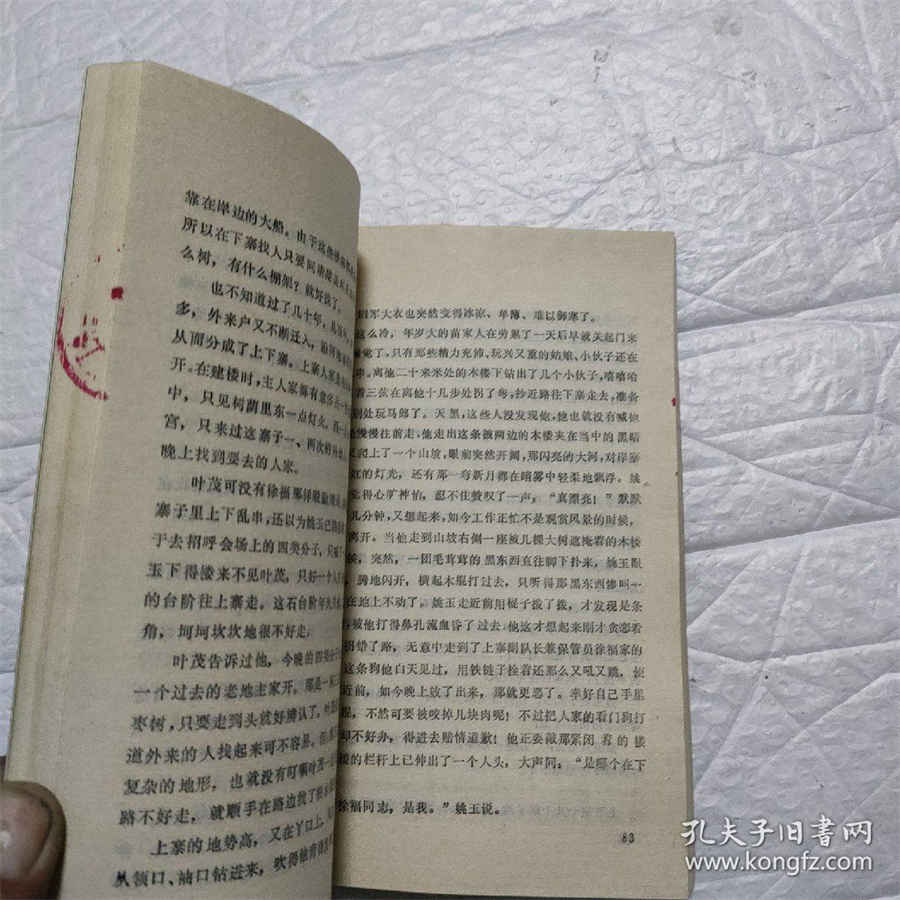 靠在岸边的大船。由于这
所以在下寨找人只要问
么树，有什么棚架？就好找了。
也不知道过了几十年，
多，外来户又不断迁入，
从而分成了上下寨。上寨人
开。在建楼时，主人家
中，只见树荫里东一点灯火，
宫，只来过这寨子一、两次
晚上找到要去的人家。
叶茂可没有徐福那样
寨子里上下乱串，还以为姚玉已
于去招呼会场上的四类分子，
玉下得楼来不见叶茂，只好一个人
的台阶往上寨走。这石台阶年
角，坷坷坎坎地很不好走，
叶茂告诉过他，今晚的四类
一个过去的老地主家开，那是一
枣树，只要走到头就好辨认了。
道外来的人找起来可不容易。
复杂的地形，也就没有叮嘱叶茂
路不好走，就顺手在路边拔了
上寨的地势高，又在丫口上，
从领口、油口钻进来，吹得他
军大衣也突然变得冰凉、单薄、难以御寒了。
这么冷，年岁大的苗家人在劳累了一天后早就关起门来
觉了，只有那些精力充沛、玩兴又重的姑娘、小伙子还在
。离他二十来米处的木楼下钻出了几个小伙子，嘻嘻哈
着三弦在离他十几步处拐了弯，抄近路往下寨走去，准备
到处玩马郎了。天黑，这些人没发现他，他也就没有喊他
慢慢往前走。他走出这条被两边的木楼夹在当中的黑暗
爬上了一个山坡，眼前突然开阔，那闪亮的大河，对岸寨
的灯光，还有那一弯新月都在暗雾中轻柔地飘浮。姚
得心旷神怡，忍不住赞叹了一声，“真漂亮！”默默
几分钟，又想起来，如今工作正忙不是观赏风景的时候，
离开。当他走到山坡右侧一座被几棵大树遮掩着的木楼
，突然，一团毛茸茸的黑东西直往脚下扑来，姚玉眼
腾地闪开，横起木棍打过去，只听得那黑东西惨叫一
在地上不动了。姚玉走近前用棍子拨了拨，才发现是条
被他打得鼻孔流血昏了过去。他这才想起来刚才贪恋看
错了路，无意中走到了上寨副队长兼保管员徐福家的
这条狗他白天见过，用铁链子拴着还那么又吼又跳，
近前，如今晚上放了出来，那就更恶了。幸好自己手里
，不然可要被咬掉几块肉呢！不过把人家的看门狗打
却不好办，得进去赔情道歉！他正要敲那紧闭着的楼
的栏杆上已伸出了一个人头，大声问：“是哪个在下
徐福同志，是我。”姚玉说。
83
孔夫子旧书网
www.kongfz.com